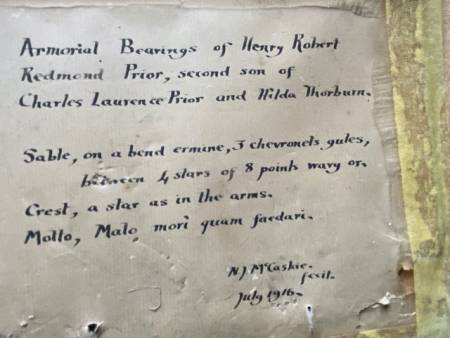 Armorial Bearings of Henry Robert
Redmond Prior, second son of
Charles Laurence Prior and Hilda Thorburn.
Sable, on a bend ermine, 3 chevronels gules,
between 4 stars of 8 points wavy or.
Crest, a star as in the arms.
Motto, Malo mori quam faedari.
N.J. McCaskie.
fecit.
July 1916~